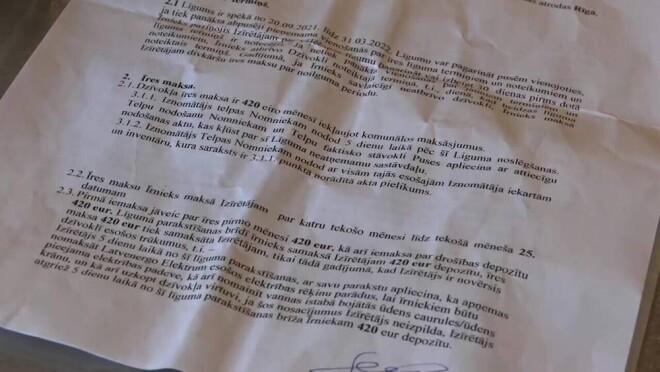 atrodas Rīga,
termiņš.
2.1 Līgums ir spēkā no 20.09.2021. līdz 31.03.2022. Līgumu var pagarināt pusēm vienojoties,
ja tiek panākta abpusēji pieņemama vienošanās par īres līguma termiņu un noteikumiem un
Īrnieks paziņojis Izīrētājam par
līguma termiņš ir notecējis
noteikumiem, Īrnieks atbrīvo Dzīvokli
noteiktais termiņš. Gadījumā, ja Īrnieks savlaicīgi neatbrīvo dzīvokli, Īrnieks maksā
Izīrētājam divkāršu īres maksu par nokavējuma periodu.
2. Īres maksa.
2.1. Dzīvokļa īres maksa ir 420 eiro mēnesī iekļaujot komunālos maksājumus.
3.1.1. Iznomātājs telpas Nomniekam nodod 5 dienu laikā pēc šī Līguma noslēgšanas.
Telpu nodošanu Nomniekam un Telpu faktisko stāvokli Puses apliecina ar attiecīgu
nodošanas aktu, kas kļūst par šī Līguma neatņemamu sastāvdaļu.
3.1.2. Iznomātājs Telpas Nomniekam nodod ar visām tajās esošajām Iznomātāja iekārtām
un inventāru, kura saraksts ir 3.1.1. punktā norādītā akta pielikums.
2.2. Īres maksu Īrnieks maksā Izīrētājam par katru tekošo mēnesi līdz tekošā mēneša 25.
datumam
2.3. Pirmā iemaksa jāveic par īres pirmo mēnesi 420 eur, kā arī iemaksa par drošības depozītu
420 eur. Līguma parakstīšanas brīdī Īrnieks samaksā Izīrētājam 420 eur depozītu, īres
maksa 420 eur tiek samaksāta Izīrētājam, tikai tādā gadījumā, kad Izīrētājs ir novērsis
dzīvoklī esošos trūkumus, t.i. –
Izīrētājs 5 dienu laikā no šī līguma parakstīšanas, ar savu parakstu apliecina, ka apņemas
nomaksāt Latvenergo Elektrum esošos elektrības rēķinu parādus, lai īrniekiem būtu
pieejama elektrības padeve, kā arī nomainīt vannas istabā bojātās ūdens caurules/ūdens
krānu, un kā arī uzkopt dzīvokļa virtuvi, ja šos nosacījumus Izīrētājs neizpilda, Izīrētājs
atgriež 5 dienu laikā no šī līguma parakstīšanas brīža Īrniekam 420 eur depozītu.